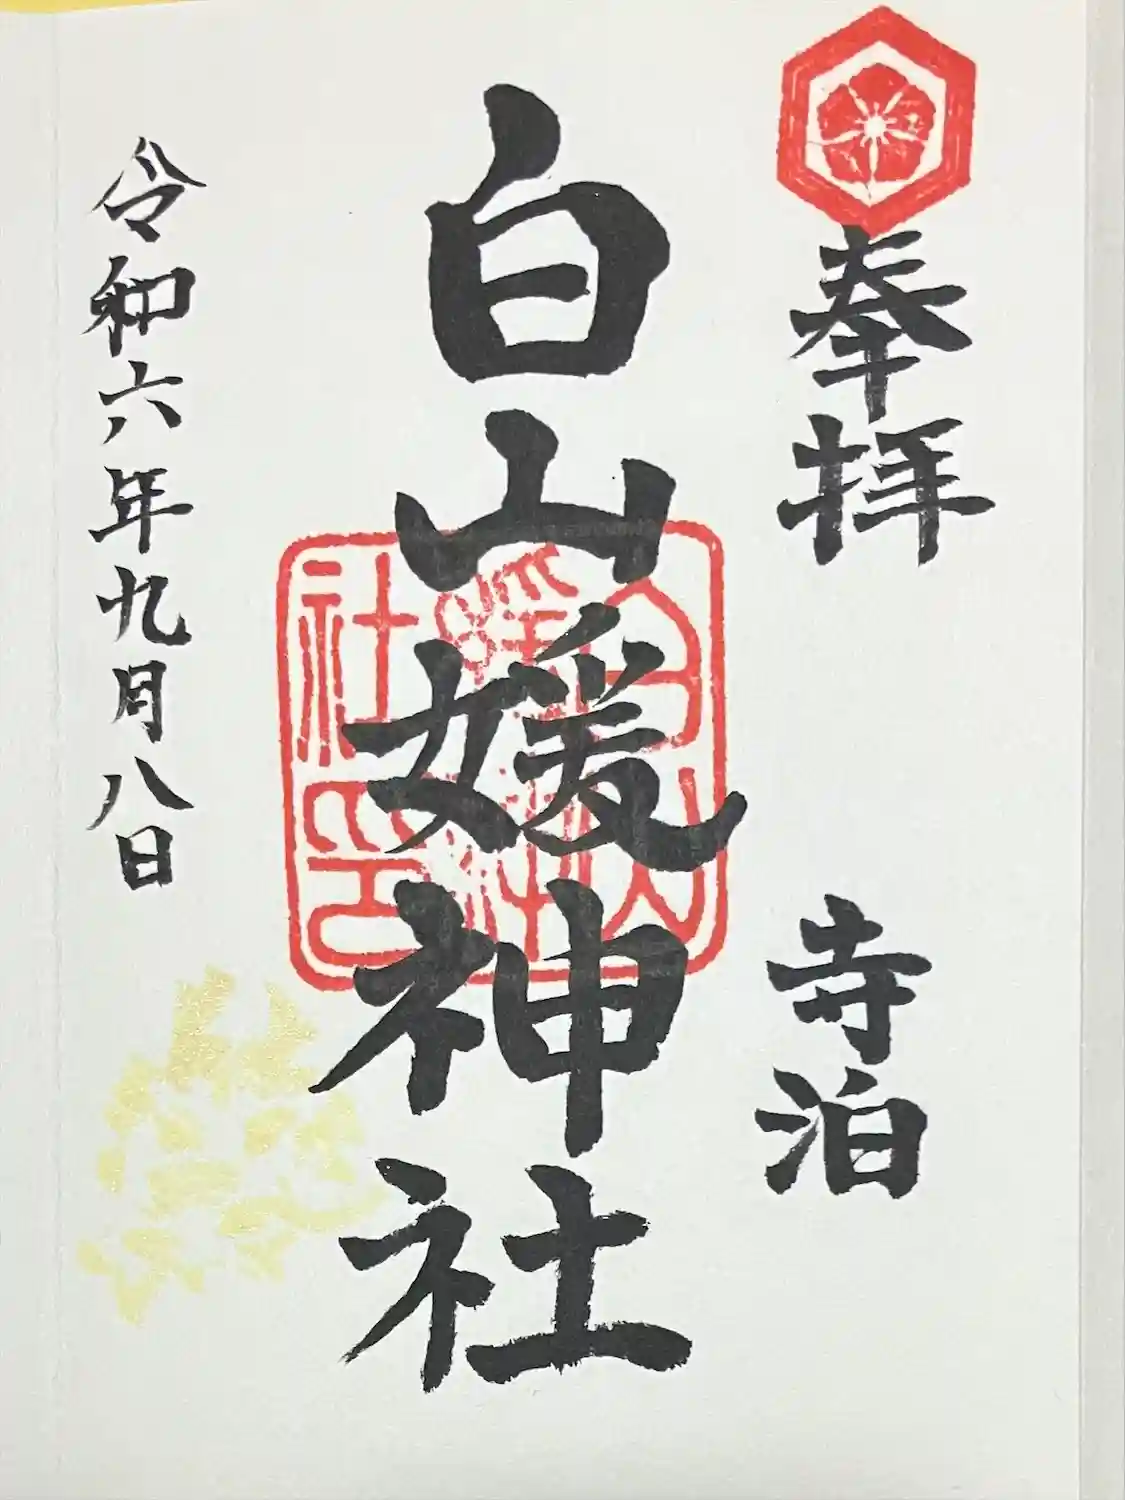 奉拝
寺泊
白山媛神社
令和六年九月八日